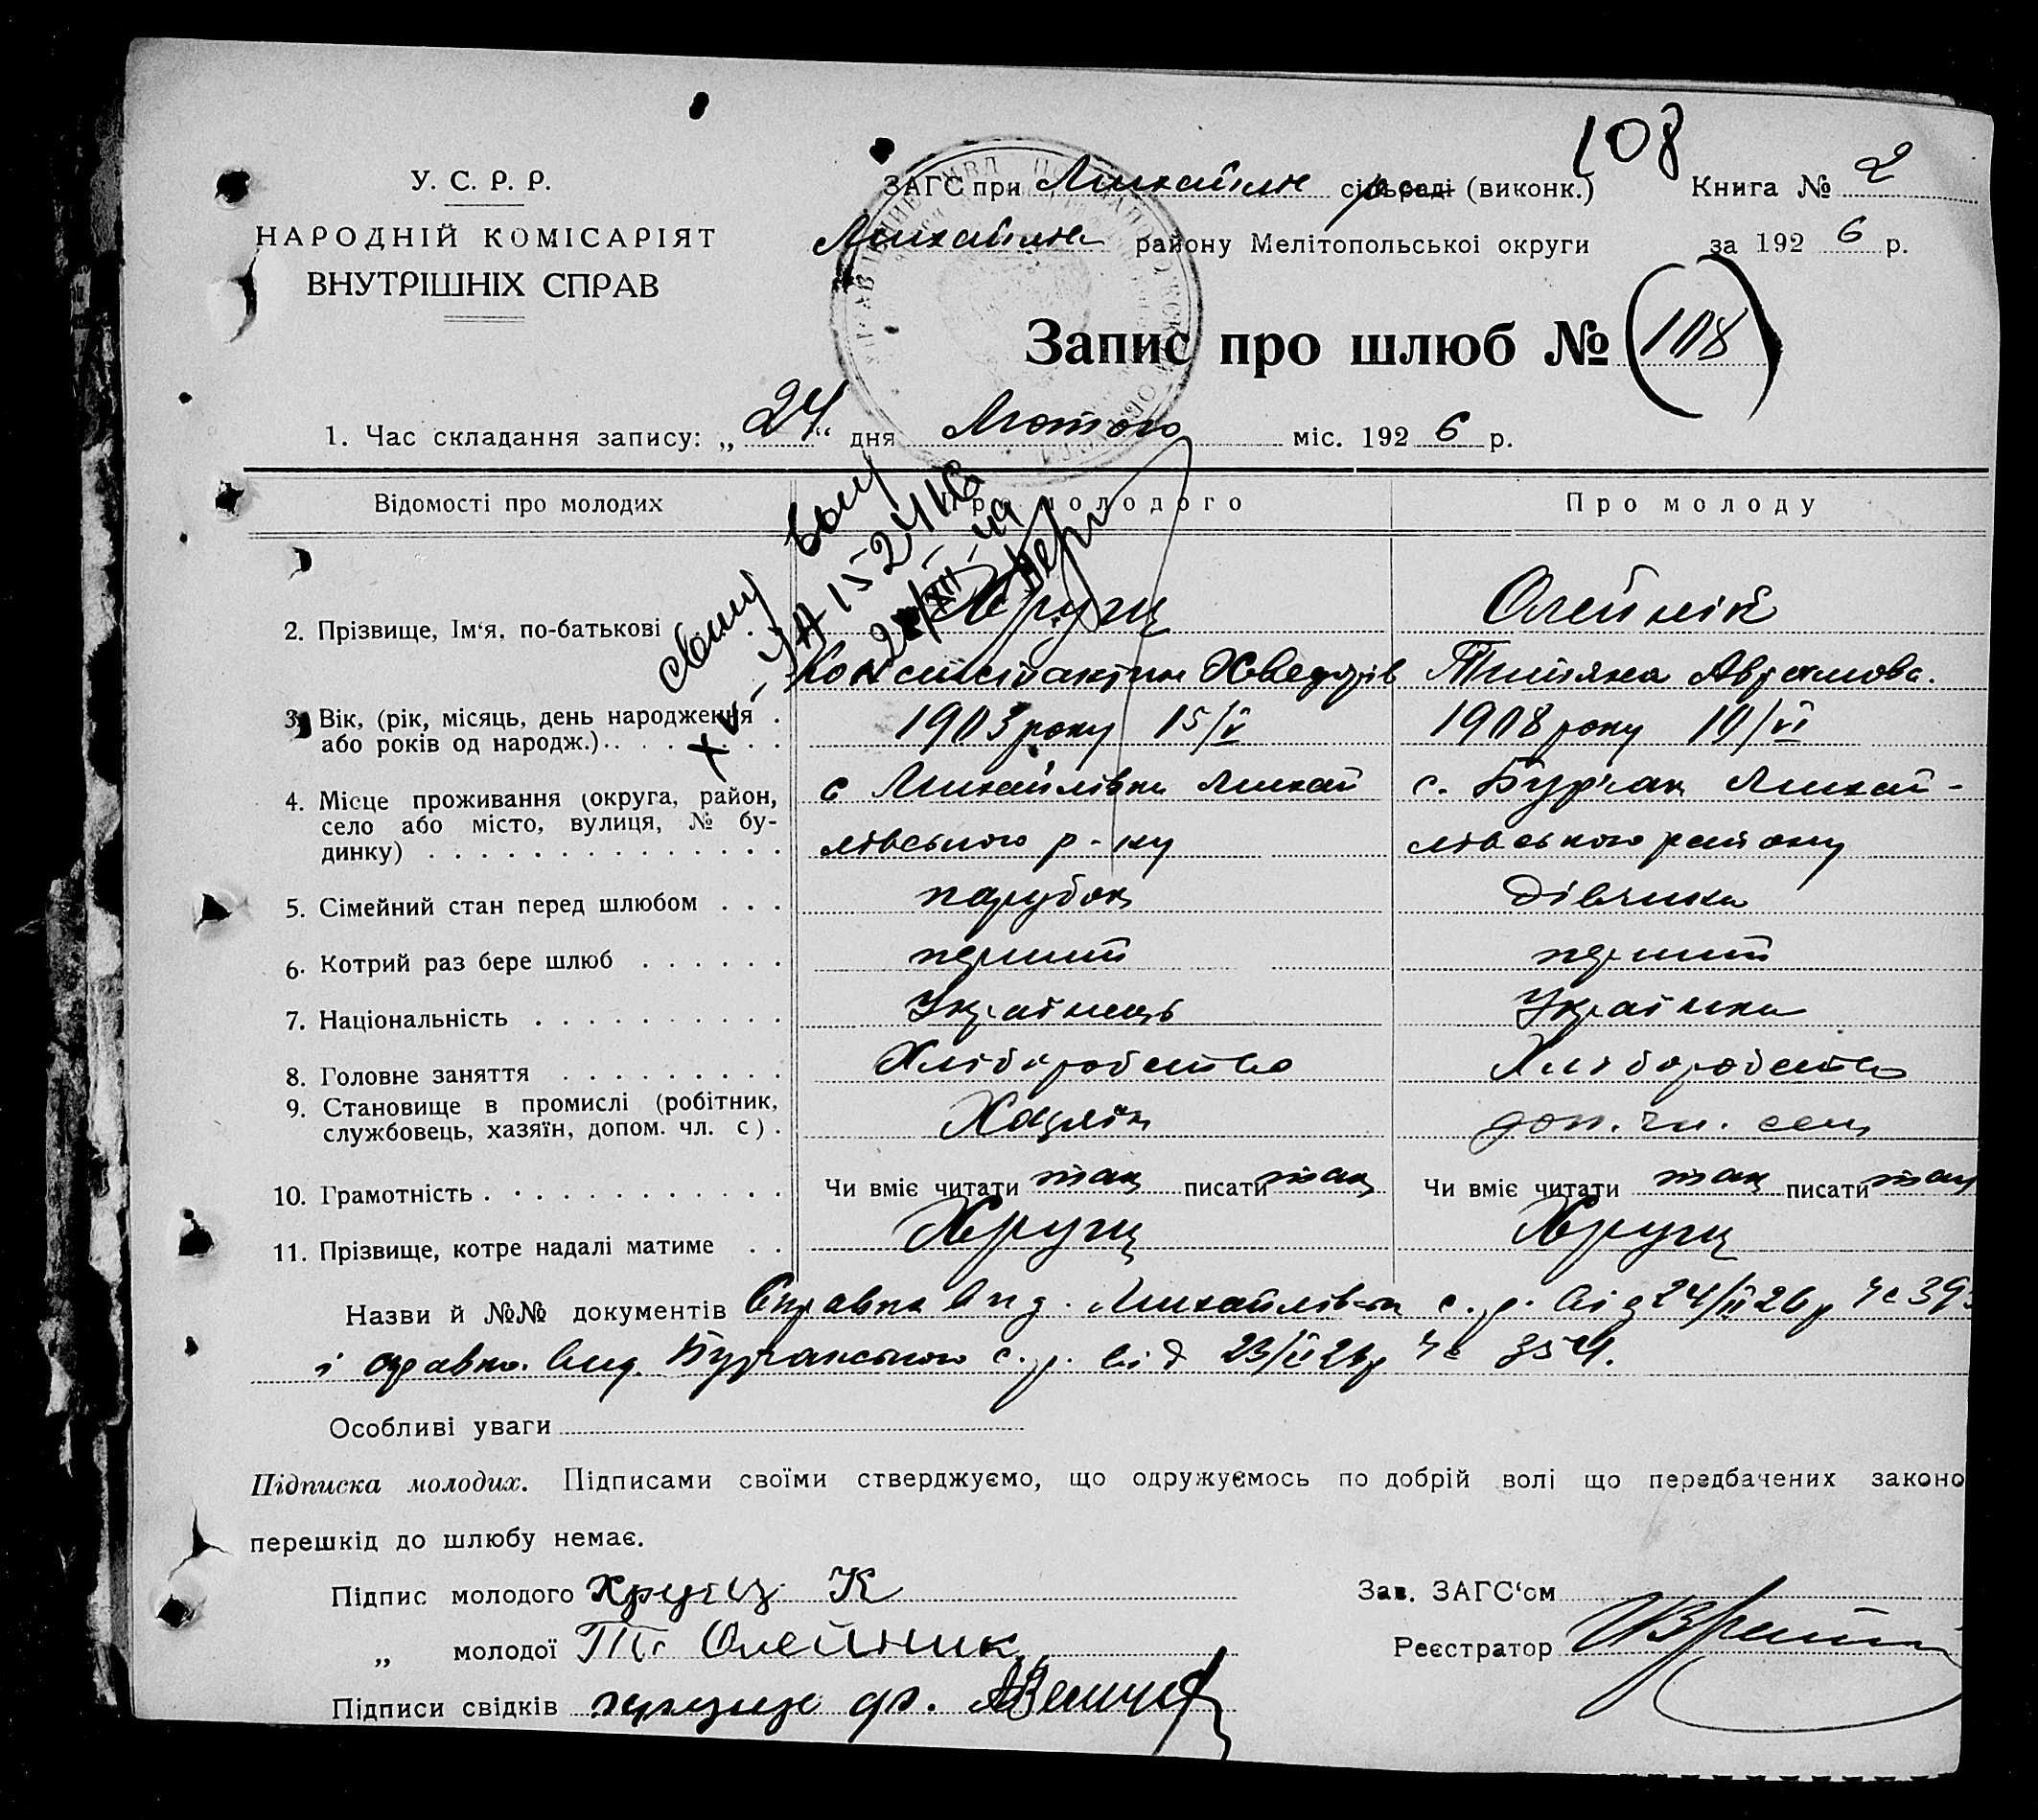 108
У. С. Р. Р.
НАРОДНІЙ КОМІСАРІЯТ
ВНУТРІШНІХ СПРАВ
ЗАГС при Михайлів сільраді (виконк.) Книга № 2
Михайлів району Мелітопольськоі округи за 1926 р.
Запис про шлюб № 108
1. Час складання запису: „24“ дня Лютого міс. 1926 р.
Відомості про молодих Про молодого Про молоду
2. Прізвище, Ім‘я, по-батькові Хрущ Олейнік
Константин Хведорів Титяна Аврамова.
3. Вік, (рік, місяць, день народження 1903 року 15/V 1908 року 10/VI
або років од народж.)
4. Місце проживання (округа, район, с Михайлівки Михай с. Бурчак Михай-
село або місто, вулиця, № бу- лівського р-ну лівського району
динку)
5. Сімейний стан перед шлюбом парубок дівчина
6. Котрий раз бере шлюб перший перший
7. Національність Українець Українка
8. Головне заняття Хліборобство Хліборобство
9. Становище в промислі (робітник,
службовець, хазяїн, допом. чл. с). Хазяїн доп. чл. сем
10. Грамотність Чи вміє читати так писати так Чи вміє читати так писати так
11. Прізвище, котре надалі матиме Хрущ Хрущ
Назви й №№ документів Справка вид. Михайлівськ с. р. від 24/II 26 р № 39
і справка вид. Бурчанського с. р. від 23/II 26 р № 354.
Особливі уваги
Підписка молодих. Підписами своїми стверджуємо, що одружуємось по добрій волі що передбачених законо
перешкід до шлюбу немає.
Підпис молодого Хрущ К Зав. ЗАГС‘ом
„ молодої Т. Олейник Реєстратор
Підписи свідків